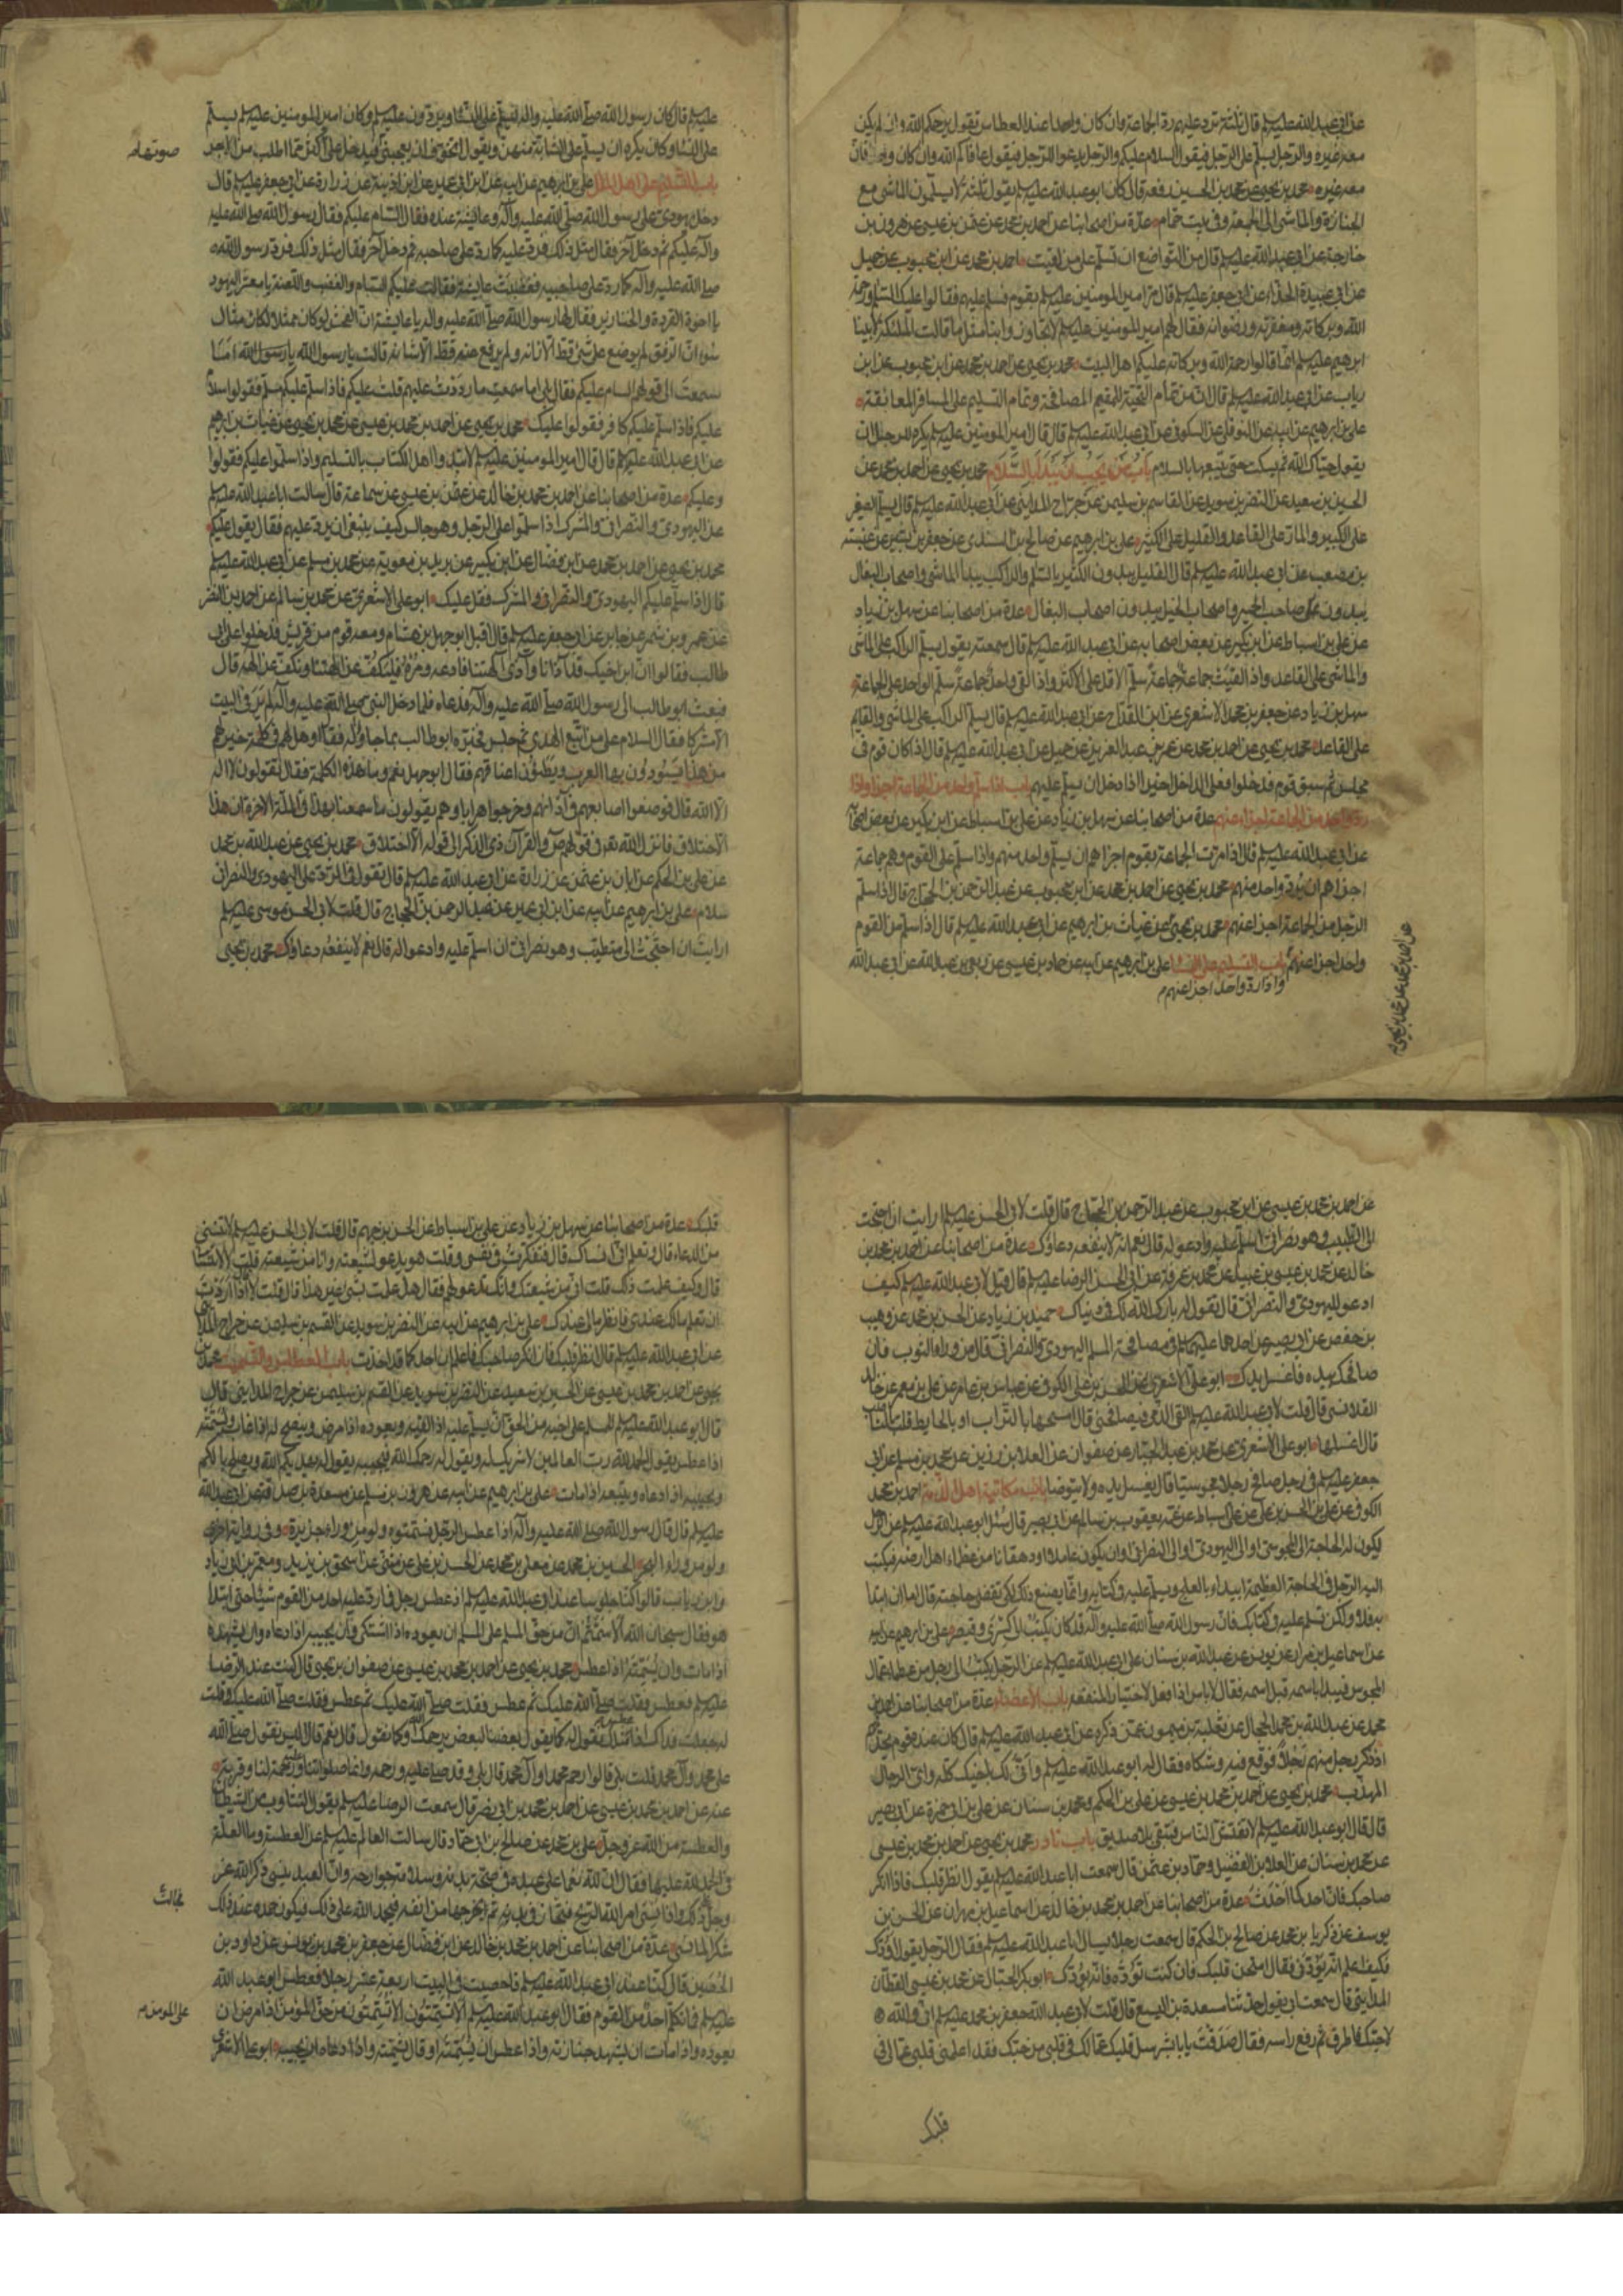 عن ابي عبد الله عليه السلم قال ثلثة ترد عليهم رد الجماعة وان كان واحدا عند العطاس تقول يرحمكم الله وان لم يكن
معه غيره والرجل يسلم على الرجل فيقول السلام عليكم والرجل يدعوا للرجل فيقول عافاكم الله وان كان واحدا فان
معه غيره محمد بن يحيى عن محمد بن الحسين رفعه قال كان ابو عبد الله عليه السلم يقول ثلثة لا يسلمون الماشي مع
الجنازة والماشي الى الجمعة وفي بيت حمام عدة من اصحابنا عن احمد بن محمد عن عثمن بن عيسى عن هرون بن
خارجة عن ابي عبد الله عليه السلم قال من التواضع ان تسلم على من لقيت احمد بن محمد عن ابن محبوب عن جميل
عن ابي عبيدة الحذاء عن ابي جعفر عليه السلم قال مر امير المومنين عليه السلم بقوم فسلم عليهم فقالوا عليك السلم ورحمة
الله وبركاته ومغفرته ورضوانه فقال لهم امير المومنين عليه السلم لا تجاوزوا بنا مثل ما قالت الملئكة لابينا
ابرهيم عليه السلم انما قالوا رحمة الله وبركاته عليكم اهل البيت محمد بن يحيى عن احمد بن محمد عن ابن محبوب عن ابن
رياب عن ابي عبد الله عليه السلم قال ان من تمام التحية للمقيم المصافحة وتمام التسليم على المسافر المعانقة
علي بن ابرهيم عن ابيه عن النوفلي عن السكوني عن ابي عبد الله عليه السلم قال قال امير المومنين عليه السلم يكره للرجل ان
يقول حياك الله ثم يسكت حتى يتبعها بالسلام باب من يجب ان يبدأ بالسلام محمد بن يحيى عن احمد بن محمد عن
الحسين بن سعيد عن النضر بن سويد عن القاسم بن سليمن عن جراح المدايني عن ابي عبد الله عليه السلم قال يسلم الصغير
على الكبير والمار على القاعد والقليل على الكثير علي بن ابرهيم عن صالح بن السندي عن جعفر بن بشير عن عنبسة
بن مصعب عن ابي عبد الله عليه السلم قال القليل يبدون الكثير بالسلم والراكب يبدأ الماشي واصحاب البغال
يبدون صاحب الحمير واصحاب الخيل يبدون اصحاب البغال عدة من اصحابنا عن سهل بن زياد
عن علي بن اسباط عن ابن بكير عن بعض اصحابه عن ابي عبد الله عليه السلم قال سمعته يقول يسلم الراكب على الماشي
والماشي على القاعد واذا لقيت جماعة جماعة سلم الاقل على الاكثر واذا لقي واحد جماعة سلم الواحد على الجماعة
سهل بن زياد عن جعفر بن محمد الاشعري عن ابن القداح عن ابي عبد الله عليه السلم قال يسلم الراكب على الماشي والقايم
على القاعد محمد بن يحيى عن احمد بن محمد عن عمر بن عبد العزيز عن جميل عن ابي عبد الله عليه السلم قال اذا كان قوم في
مجلس ثم سبق قوم فدخلوا فعلى الداخل اخيرا اذا دخل ان يسلم عليهم باب اذا سلم واحد من الجماعة اجزاهم واذا
رد واحد من الجماعة اجزا عنهم عدة من اصحابنا عن سهل بن زياد عن علي بن اسباط عن ابن بكير عن بعض اصحابه
عن ابي عبد الله عليه السلم قال اذا مرت الجماعة بقوم اجزاهم ان يسلم واحد منهم واذا سلم على القوم وهم جماعة
اجزاهم ان يرد واحد منهم محمد بن يحيى عن احمد بن محمد عن ابن محبوب عن عبد الرحمن بن الحجاج قال اذا سلم
الرجل من الجماعة اجزا عنهم محمد بن يحيى عن غياث بن ابرهيم عن ابي عبد الله عليه السلم قال اذا سلم من القوم
واحد اجزا عنهم باب التسليم على النسا علي بن ابرهيم عن ابيه عن حماد بن عيسى عن ربعي بن عبد الله عن ابي عبد الله
واذا رد واحد اجزا عنهم
عن احمد بن محمد عن محمد بن يحيى
عليه السلم قال كان رسول الله صلى الله عليه واله يسلم على النسا ويرددن عليه السلم وكان امير المومنين عليه السلم يسلم
على النسا وكان يكره ان يسلم على الشابة منهن ويقول اتخوف ان يعجبني فيدخل علي اكثر مما اطلب من الاجر
صوتها
باب التسليم على اهل الملل علي بن ابرهيم عن ابيه عن ابن ابي عمير عن ابن اذينة عن زرارة عن ابي جعفر عليه السلم قال
دخل يهودي على رسول الله صلى الله عليه وآله وعايشة عنده فقال السام عليكم فقال رسول الله صلى الله عليه
وآله عليكم ثم دخل آخر فقال مثل ذلك فرد عليه كما رد على صاحبه ثم دخل آخر فقال مثل ذلك فرد رسول الله
صلى الله عليه وآله كما رد على صاحبيه فغضبت عايشة فقالت عليكم السام والغضب واللعنة يا معشر اليهود
يا اخوة القردة والخنازير فقال لها رسول الله صلى الله عليه وآله يا عايشة ان الفحش لو كان ممثلا لكان مثال
سوء ان الرفق لم يوضع على شي قط الا زانه ولم يرفع عنه قط الا شانه قالت يا رسول الله اما
سمعت الى قولهم السام عليكم فقال بلى اما سمعت ما رددت عليهم قلت عليكم فاذا سلم عليكم مسلم فقولوا سلام
عليكم فاذا سلم عليكم كافر فقولوا عليك محمد بن يحيى عن احمد بن محمد بن عيسى عن محمد بن يحيى عن غياث بن ابرهيم
عن ابي عبد الله عليه السلم قال قال امير المومنين عليه السلم لا تبدوا اهل الكتاب بالتسليم واذا سلموا عليكم فقولوا
وعليكم عدة من اصحابنا عن احمد بن محمد بن خالد عن عثمن بن عيسى عن سماعة قال سالت ابا عبد الله عليه السلم
عن اليهودي والنصراني والمشرك اذا سلموا على الرجل وهو جالس كيف ينبغي ان يرد عليهم فقال يقول عليكم
محمد بن يحيى عن احمد بن محمد عن ابن فضال عن ابن بكير عن بريد بن معوية عن محمد بن مسلم عن ابي عبد الله عليه السلم
قال اذا سلم عليكم اليهودي والنصراني والمشرك فقل عليك ابو علي الاشعري عن محمد بن سالم عن احمد بن النضر
عن عمرو بن شمر عن جابر عن ابي جعفر عليه السلم قال اقبل ابو جهل بن هشام ومعه قوم من قريش فدخلوا على ابي
طالب فقالوا ان ابن اخيك قد آذانا وآذى آلهتنا فادعه ومره فليكف عن آلهتنا ونكف عن الهه قال
فبعث ابو طالب الى رسول الله صلى الله عليه وآله فدعاه فلما دخل النبي صلى الله عليه وآله لم ير في البيت
الا مشركا فقال السلام على من اتبع الهدى ثم جلس فخبره ابو طالب بما جاؤا له فقال او هل لهم في كلمة خير لهم
من هذا يسودون بها العرب ويطؤن اعناقهم فقال ابو جهل نعم وما هذه الكلمة فقال تقولون لا اله
الا الله قال فوضعوا اصابعهم في آذانهم وخرجوا هرابا وهم يقولون ما سمعنا بهذا في الملة الاخرة ان هذا
الا اختلاق فانزل الله تعالى في قولهم ص والقرآن ذي الذكر الى قوله الا اختلاق محمد بن يحيى عن عبد الله بن محمد
عن علي بن الحكم عن ابان بن عثمن عن زرارة عن ابي عبد الله عليه السلم قال تقول في الرد على اليهودي والنصراني
سلام علي بن ابرهيم عن ابيه عن ابن ابي عمير عن عبد الرحمن بن الحجاج قال قلت لابي الحسن موسى عليه السلم
ارايت ان احتجت الى متطبب وهو نصراني ان اسلم عليه وادعو له قال نعم لا ينفعه دعاؤك محمد بن يحيى
عن احمد بن محمد بن عيسى عن ابن محبوب عن عبد الرحمن بن الحجاج قال قلت لابي الحسن عليه السلم ارايت ان احتجت
الى الطبيب وهو نصراني اسلم عليه وادعو له قال نعم انه لا ينفعه دعاؤك عدة من اصحابنا عن احمد بن محمد بن
خالد عن محمد بن عيسى بن عبيد عن محمد بن عرفة عن ابي الحسن الرضا عليه السلم قال قيل لابي عبد الله عليه السلم كيف
ادعو لليهودي والنصراني قال تقول له بارك الله لك في دنياك حميد بن زياد عن الحسن بن محمد عن وهيب
بن حفص عن ابي بصير عن احدهما عليهما السلم في مصافحة المسلم اليهودي والنصراني قال من وراء الثوب فان
صافحك بيده فاغسل يدك ابو علي الاشعري عن الحسن بن علي الكوفي عن عباس بن عامر عن علي بن معمر عن خالد
القلانسي قال قلت لابي عبد الله عليه السلم القى الذمي فيصافحني قال امسحها بالتراب او بالحايط قلت فالناصب
قال اغسلها ابو علي الاشعري عن محمد بن عبد الجبار عن صفوان عن العلا بن رزين عن محمد بن مسلم عن ابي
جعفر عليه السلم في رجل صافح رجلا مجوسيا قال يغسل يده ولا يتوضا باب مكاتبة اهل الذمة احمد بن محمد
الكوفي عن علي بن الحسن بن علي عن علي بن اسباط عن عمه يعقوب بن سالم عن ابي بصير قال سئل ابو عبد الله عليه السلم عن الرجل
يكون له الحاجة الى المجوسي او الى اليهودي او الى النصراني او ان يكون عاملا او دهقانا من عظماء اهل ارضه فيكتب
اليه الرجل في الحاجة العظيمة ايبدا بالعلج ويسلم عليه في كتابه وانما يصنع ذلك لكي تقضى حاجته قال اما ان تبدا
به فلا ولكن تسلم عليه في كتابك فان رسول الله صلى الله عليه وآله قد كان يكتب الى كسرى وقيصر علي بن ابرهيم عن ابيه
عن اسماعيل بن مرار عن يونس عن عبد الله بن سنان عن ابي عبد الله عليه السلم عن الرجل يكتب الى رجل من عظماء عمال
المجوس فيبدا باسمه قبل اسمه فقال لا باس اذا فعل لاختيار المنفعة باب الاغضاء عدة من اصحابنا عن احمد بن
محمد عن عبد الله بن محمد الحجال عن ثعلبة بن ميمون عمن ذكره عن ابي عبد الله عليه السلم قال كان عنده قوم يحدثهم
اذ ذكر رجل منهم رجلا فوقع فيه وشكاه فقال له ابو عبد الله عليه السلم وانى لك باخيك كله واي الرجال
المهذب محمد بن يحيى عن احمد بن محمد بن عيسى عن علي بن الحكم ومحمد بن سنان عن علي بن ابي حمزة عن ابي بصير
قال قال ابو عبد الله عليه السلم لا تفتش الناس فتبقى بلا صديق باب نادر محمد بن يحيى عن احمد بن محمد بن عيسى
عن محمد بن سنان عن العلا بن الفضيل وحماد بن عثمن قال سمعت ابا عبد الله عليه السلم يقول انظر قلبك فاذا انكر
صاحبك فان احدكما احدث عدة من اصحابنا عن احمد بن محمد بن خالد عن اسماعيل بن مهران عن الحسن بن
يوسف عن زكريا بن محمد عن صالح بن الحكم قال سمعت رجلا يسال ابا عبد الله عليه السلم فقال الرجل يقول اودك
فكيف اعلم انه يودني فقال امتحن قلبك فان كنت توده فانه يودك ابو بكر الحبال عن محمد بن عيسى القطان
المدايني قال سمعت ابي يقول حدثنا مسعدة بن اليسع قال قلت لابي عبد الله جعفر بن محمد عليه السلم اني والله
لاحبك فاطرق ثم رفع راسه فقال صدقت يا با بشر سل قلبك عما لك في قلبي من حبك فقد اعلمني قلبي عما لي في
قلبك
قلبك عدة من اصحابنا عن سهل بن زياد عن علي بن اسباط عن الحسن بن جهم قال قلت لابي الحسن عليه السلم لا تنسني
من الدعاء قال وتعلم اني انساك قال فتفكرت في نفسي وقلت هو يدعو لشيعته وانا من شيعته قلت لا تنسانا
قال وكيف علمت ذلك قلت اني من شيعتك وانك تدعو لهم فقال هل علمت بشي غير هذا قال قلت لا قال اذا اردت
ان تعلم مالك عندي فانظر ما لي عندك علي بن ابرهيم عن ابيه عن النضر بن سويد عن القسم بن سليمن عن جراح المدايني
عن ابي عبد الله عليه السلم قال انظر قلبك فان انكر صاحبك فاعلم ان احدكما قد احدث باب العطاس والتسميت محمد بن
يحيى عن احمد بن محمد بن عيسى عن الحسين بن سعيد عن النضر بن سويد عن القسم بن سليمن عن جراح المدايني قال
قال ابو عبد الله عليه السلم للمسلم على اخيه من الحق ان يسلم عليه اذا لقيه ويعوده اذا مرض وينصح له اذا غاب ويسمته
اذا عطس يقول الحمد لله رب العالمين لا شريك له ويقول له رحمك الله فيجيبه يقول له يهديكم الله ويصلح بالكم
ويجيبه اذا دعاه ويتبعه اذا مات علي بن ابرهيم عن ابيه عن هرون بن مسلم عن مسعدة بن صدقة عن ابي عبد الله
عليه السلم قال قال رسول الله صلى الله عليه وآله اذا عطس الرجل فسمتوه ولو من وراء جزيرة وفي رواية اخرى
ولو من وراء البحر الحسين بن محمد عن معلى بن محمد عن الحسن بن علي عن مثنى عن اسحق بن يزيد ومعمر بن ابي زياد
وابن رياب قالوا كنا جلوسا عند ابي عبد الله عليه السلم اذ عطس رجل فما رد عليه احد من القوم شيئا حتى ابتدا
هو فقال سبحان الله الا سمتم ان من حق المسلم على المسلم ان يعوده اذا اشتكى وان يجيبه اذا دعاه وان يشهده
اذا مات وان يسمته اذا عطس محمد بن يحيى عن احمد بن محمد بن عيسى عن صفوان بن يحيى قال كنت عند الرضا
عليه السلم فعطس فقلت صلى الله عليك ثم عطس فقلت صلى الله عليك ثم عطس فقلت صلى الله عليك وقلت
له جعلت فداك اذا عطس مثلك يقول له كما يقول بعضنا لبعض يرحمك الله وكما نقول قال نعم قال اليس يقول صلى الله
على محمد وآل محمد قلت بلى قال ارحم محمدا وآل محمد قال بلى وقد صلى عليه ورحمه وانما صلواتنا عليه رحمة لنا وقربة
عنه عن احمد بن محمد بن عيسى عن احمد بن محمد بن ابي نصر قال سمعت الرضا عليه السلم يقول التثاوب من الشيطان
والعطسة من الله عز وجل علي بن محمد عن صالح بن ابي حماد قال سالت العالم عليه السلم عن العطسة وما العلة
في الحمد لله عليها فقال ان لله نعما على عبده في صحة بدنه وسلامة جوارحه وان العبد ينسى ذكر الله عز
وجل على ذلك واذا نسي امر الله الريح فتجاز في بدنه ثم يخرجها من انفه فيحمد الله على ذلك فيكون حمده عند ذلك
شكرا لما نسي عدة من اصحابنا عن احمد بن محمد بن خالد عن ابن فضال عن جعفر بن محمد بن يونس عن داود بن
الحصين قال كنا عند ابي عبد الله عليه السلم فاحصيت في البيت اربعة عشر رجلا فعطس ابو عبد الله
عليه السلم فما تكلم احد من القوم فقال ابو عبد الله عليه السلم الا تسمتون الا تسمتون من حق المؤمن اذا مرض ان
على المومن
يعوده واذا مات ان يشهد جنازته واذا عطس ان يسمته او قال يشمته واذا دعاه ان يجيبه ابو علي الاشعري